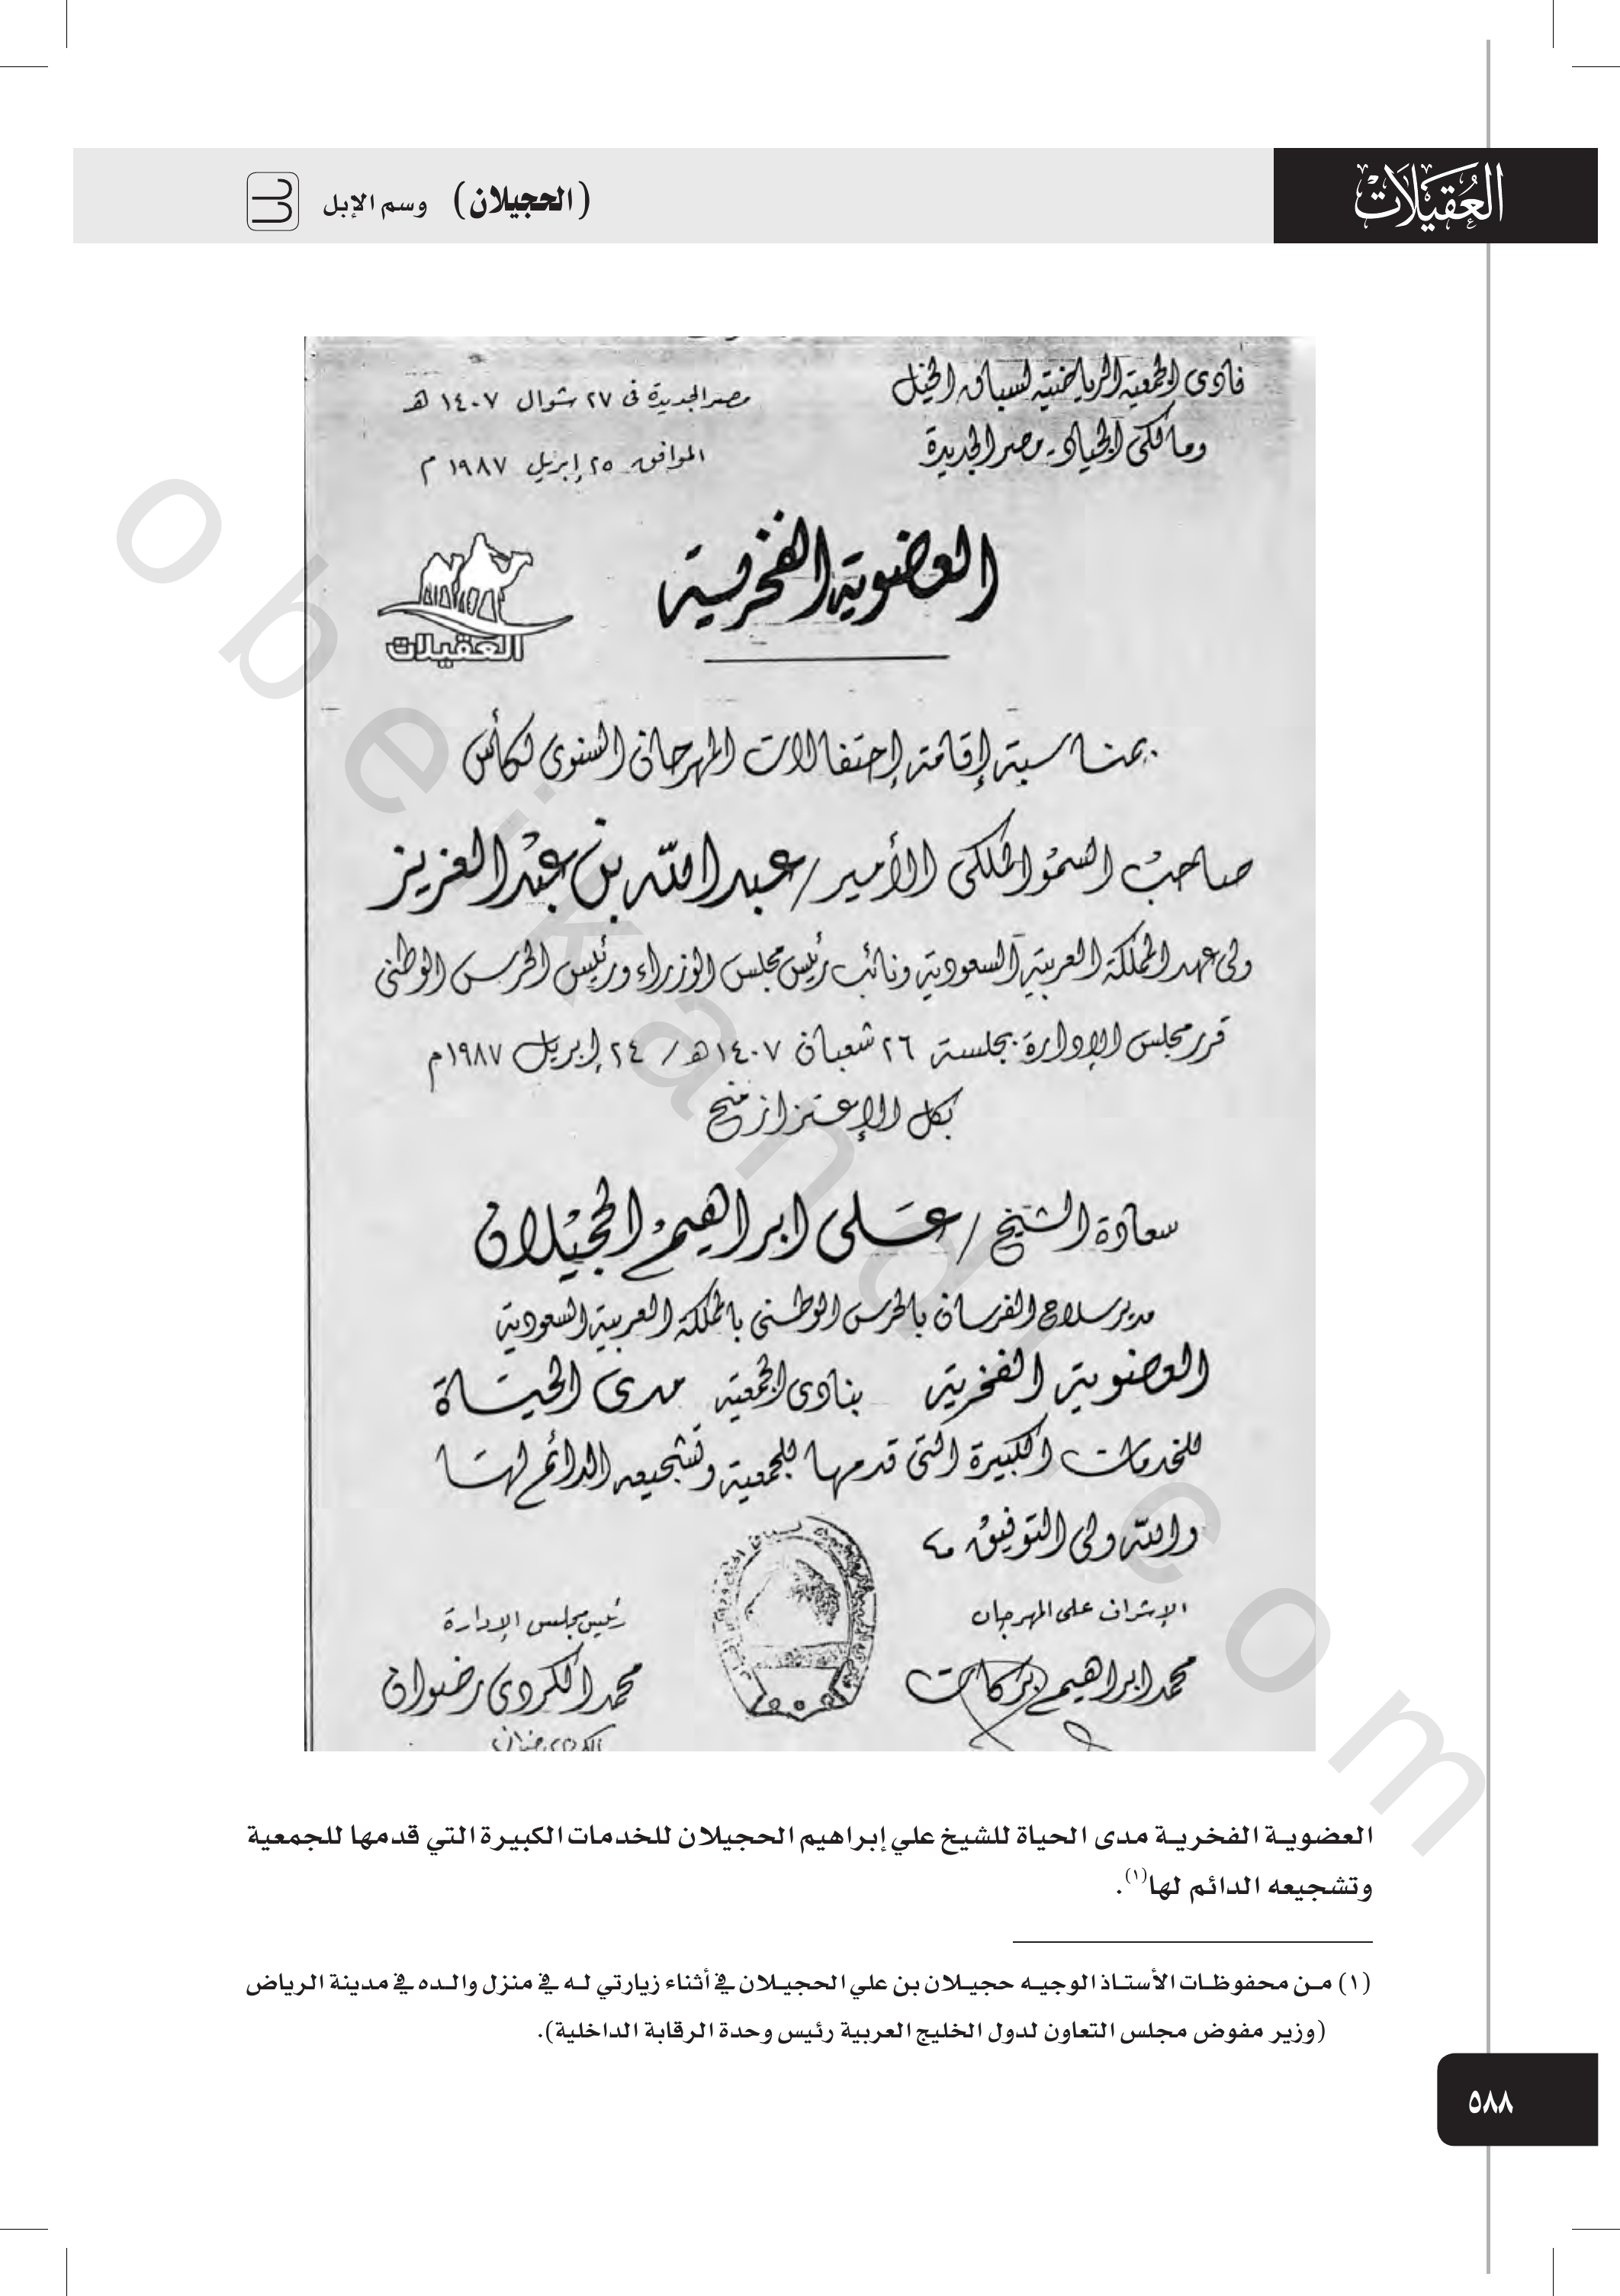 العُقَيْلَاتْ
(الحجيلان) وسم الإبل
نادى الجمعية الرياضية لسباق الخيل
ومالكى الجياد - مصر الجديدة
مصر الجديدة فى ٢٧ شوال ١٤٠٧ هـ
الموافق ٢٥ إبريل ١٩٨٧ م
العضوية الفخرية
العقيلات
بمناسبة إقامة إحتفالات المهرجان السنوى لكأس
صاحب السمو الملكى الأمير / عبد الله بن عبد العزيز
ولى عهد المملكة العربية السعودية ونائب رئيس مجلس الوزراء ورئيس الحرس الوطنى
قرر مجلس الإدارة بجلسة ٢٦ شعبان ١٤٠٧ هـ / ٢٤ إبريل ١٩٨٧ م
بكل الإعتزاز منح
سعادة الشيخ / على ابراهيم الحجيلان
مدير سلاح الفرسان بالحرس الوطنى بالمملكة العربية السعودية
العضوية الفخرية بنادى الجمعية مدى الحياة
للخدمات الكبيرة التى قدمها للجمعية وتشجيعه الدائم لها
والله ولى التوفيق
الإشراف على المهرجان
محمد ابراهيم بركات
رئيس مجلس الإدارة
محمد الكردى رضوان
العضوية الفخرية مدى الحياة للشيخ علي إبراهيم الحجيلان للخدمات الكبيرة التي قدمها للجمعية
وتشجيعه الدائم لها(١).
(١) من محفوظات الأستاذ الوجيه حجيلان بن علي الحجيلان في أثناء زيارتي له في منزل والده في مدينة الرياض
(وزير مفوض مجلس التعاون لدول الخليج العربية رئيس وحدة الرقابة الداخلية).
٥٨٨
obeikandl.com